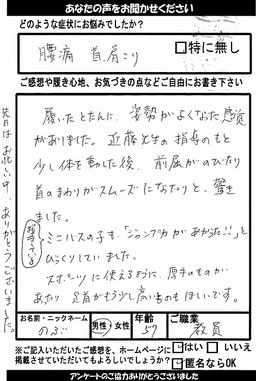 あなたの声をお聞かせください
どのような症状にお悩みでしたか?
腰痛 首、肩こり
□特に無し
ご感想や履き心地、お気づきの点などご自由にお書き下さい
履いたとたんに、姿勢がよくなた感覚
がありました。近藤先生の指導のもと
少し体を動した後、前屈がのびたり
首のまわりがスムーズになったりと、驚き
ました。
指導している
ミニバスの子も、「ジャンプ力があがった!!」と
びっくりしていました。
スポーツに使えるように、厚手のものが
あったり、足首がもう少し高いものもほしいです。
先日はお忙しい中、ありがとうございました。
お名前・ニックネーム
のぶ
男性・女性
年齢
57
ご職業
教員
※ご記入いただいたご感想を、ホームページに
掲載させていただいてもよろしいでしょうか?
はい □いいえ
匿名ならOK
アンケートのご協力ありがとうございました